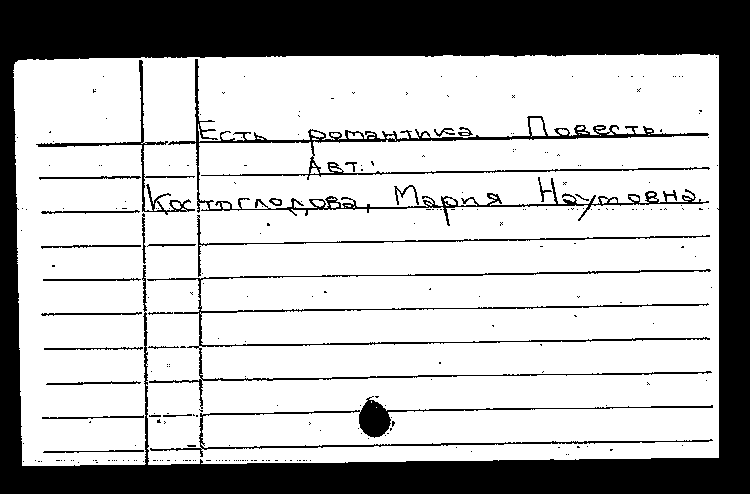 Есть романтика. Повесть.
Авт.:
Костоглодова, Мария Наумовна.